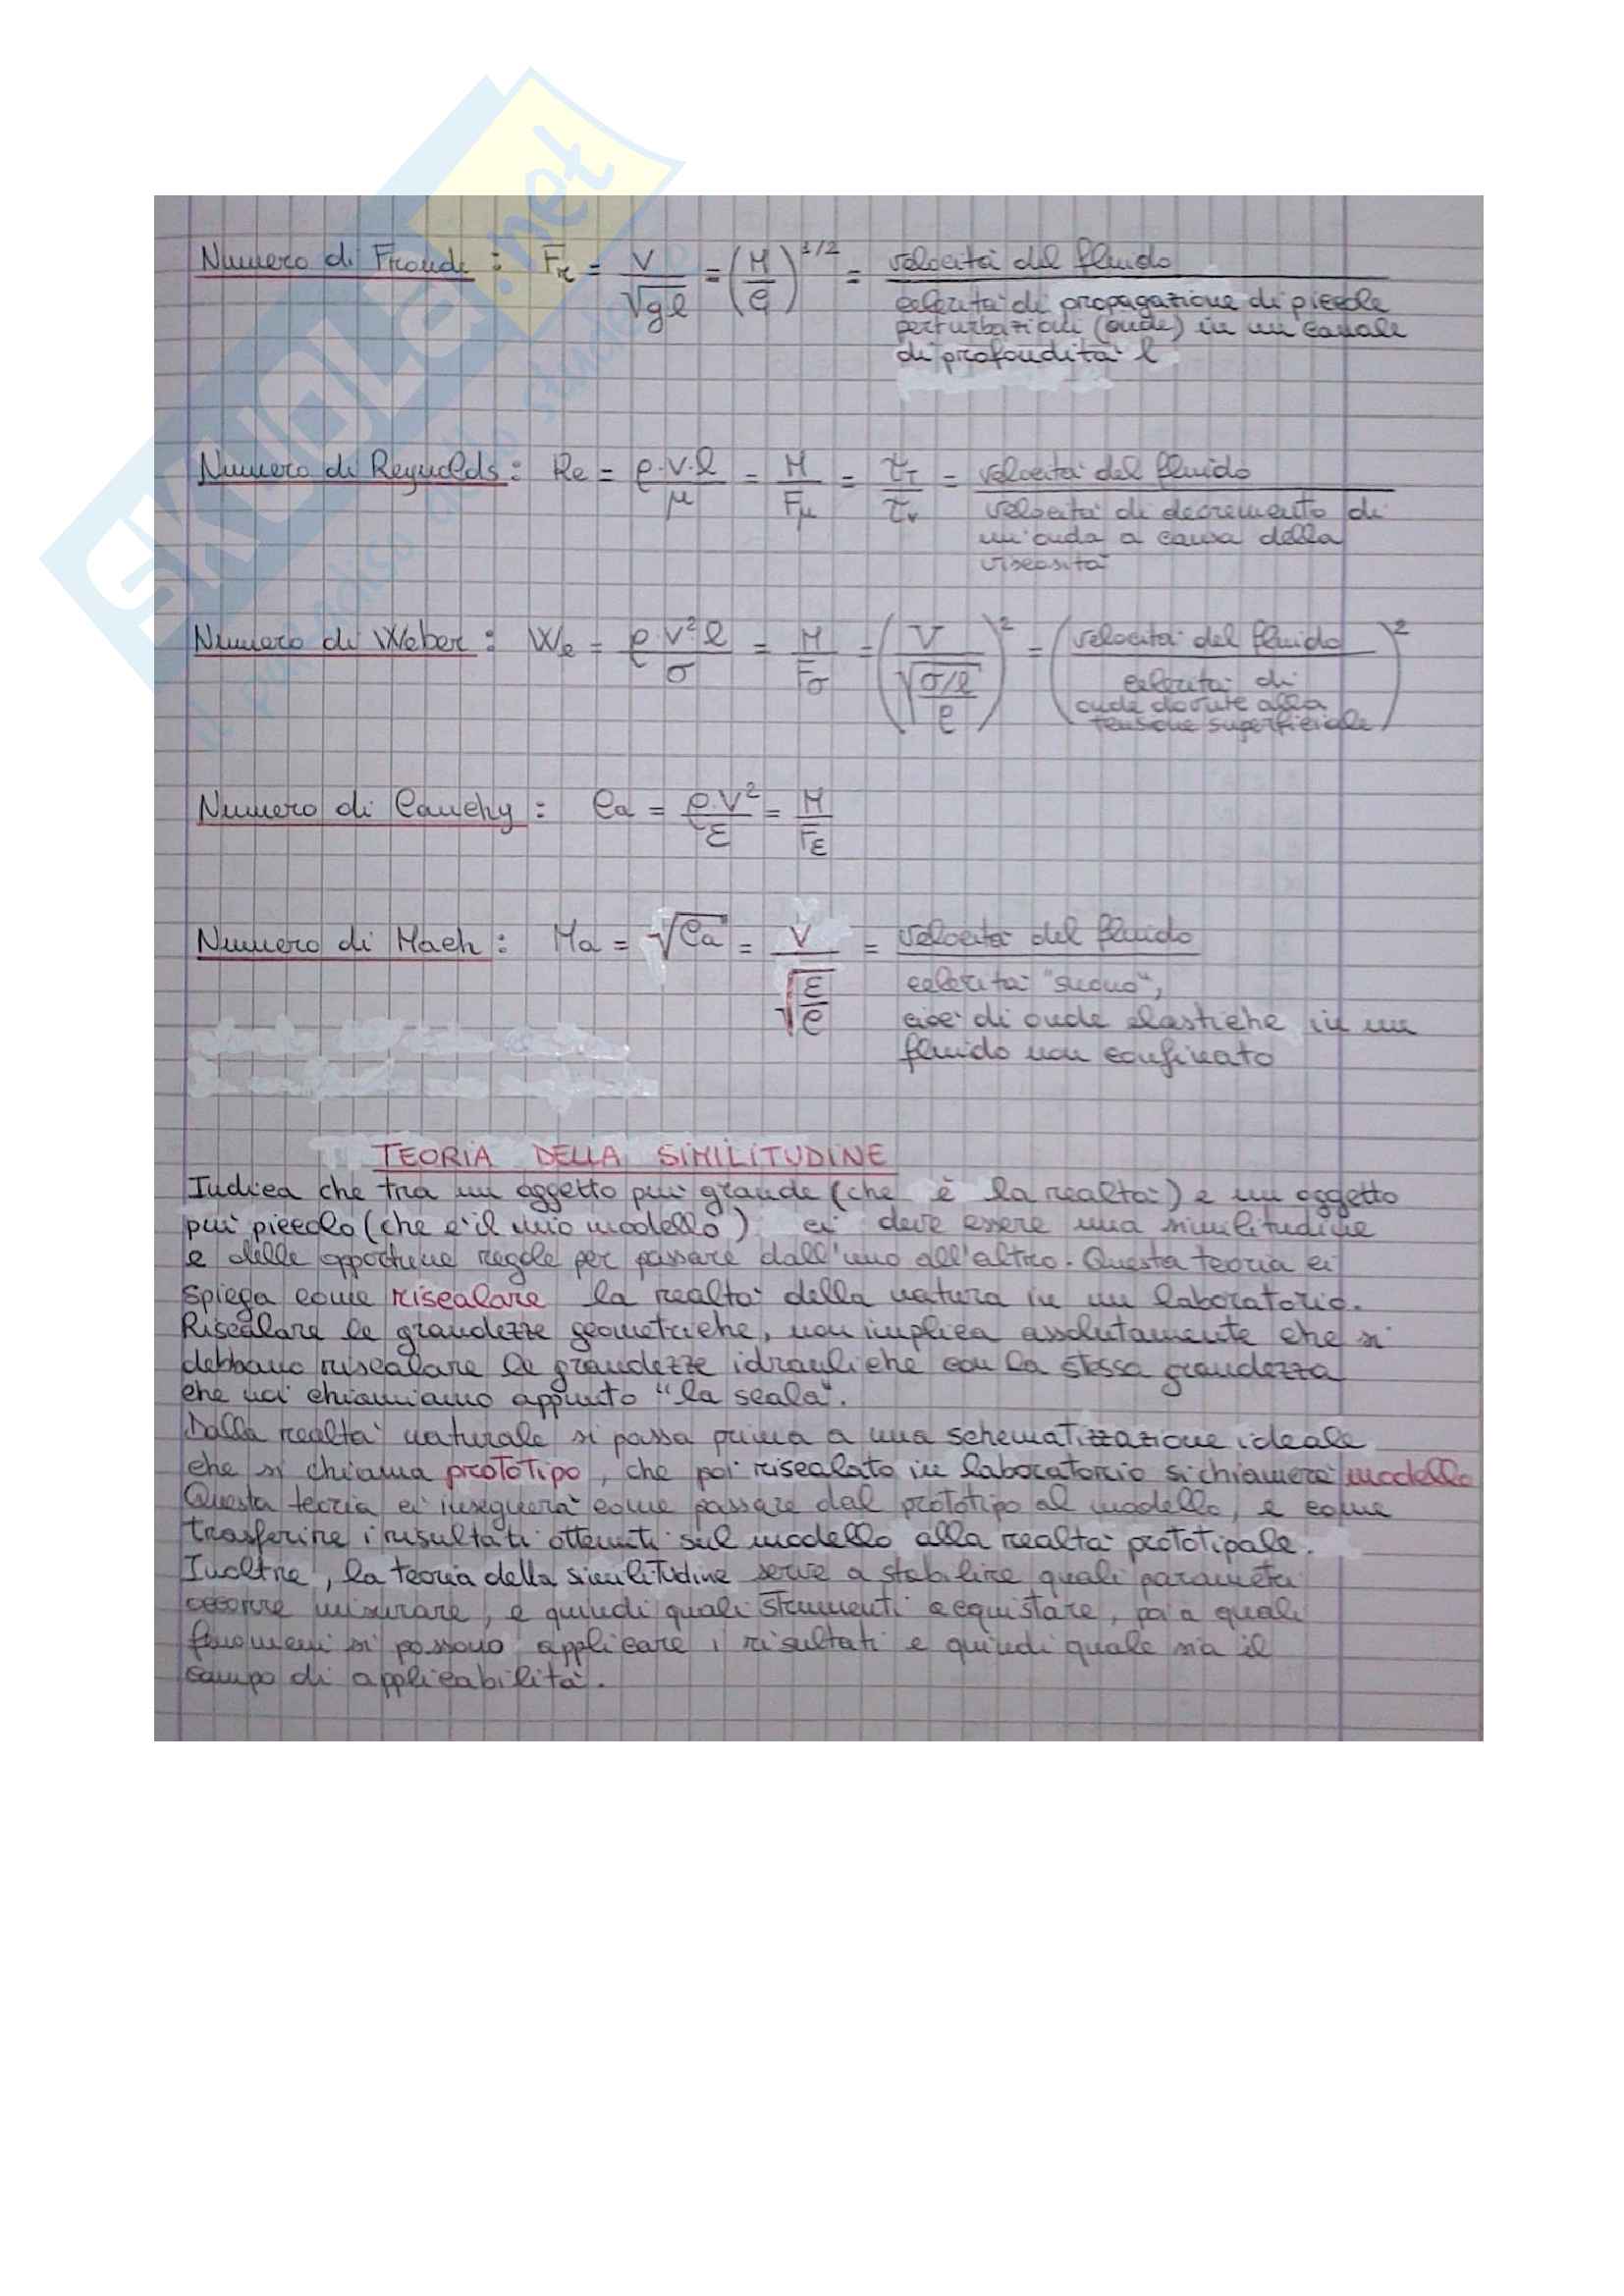 SKUOLa.net
il paradiso dello studente
Numero di Froude : Fr = V / √gl = (M / G)^1/2 = velocità del fluido / celerità di propagazione di piccole
perturbazioni (onde) in un canale
di profondità l
Numero di Reynolds : Re = ρ·V·l / μ = M / Fμ = τT / τv = velocità del fluido / velocità di decremento di
un'onda a causa della
viscosità
Numero di Weber : We = ρ·V²l / σ = M / Fσ = (V / √((σ/l) / ρ))² = (velocità del fluido / celerità di
onde dovute alla
tensione superficiale)²
Numero di Cauchy : Ca = ρ·V² / ε = M / Fε
Numero di Mach : Ma = √Ca = V / √(ε / ρ) = velocità del fluido / celerità "suono",
cioè di onde elastiche in un
fluido non confinato
TEORIA DELLA SIMILITUDINE
Indica che tra un oggetto più grande (che è la realtà) e un oggetto
più piccolo (che è il mio modello) ci deve essere una similitudine
e delle opportune regole per passare dall'uno all'altro. Questa teoria ci
spiega come riscalare la realtà della natura in un laboratorio.
Riscalare le grandezze geometriche, non implica assolutamente che si
debbano riscalare le grandezze idrauliche con la stessa grandezza
che noi chiamiamo appunto "la scala".
Dalla realtà naturale si passa prima a una schematizzazione ideale
che si chiama prototipo, che poi riscalato in laboratorio si chiamerà modello
Questa teoria ci insegnerà come passare dal prototipo al modello, e come
trasferire i risultati ottenuti sul modello alla realtà prototipale.
Inoltre, la teoria della similitudine serve a stabilire quali parametri
occorre misurare, e quindi quali strumenti acquistare, poi a quali
fenomeni si possono applicare i risultati e quindi quale sia il
campo di applicabilità.